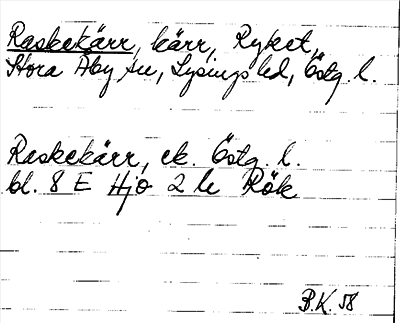 Raskekärr, kärr, Ryket,
Stora Åby sn, Lysings hd, Östg. l.
Raskekärr, ek. Östg. l.
bl. 8 E Hjo 2 le Rök
B.K. 58